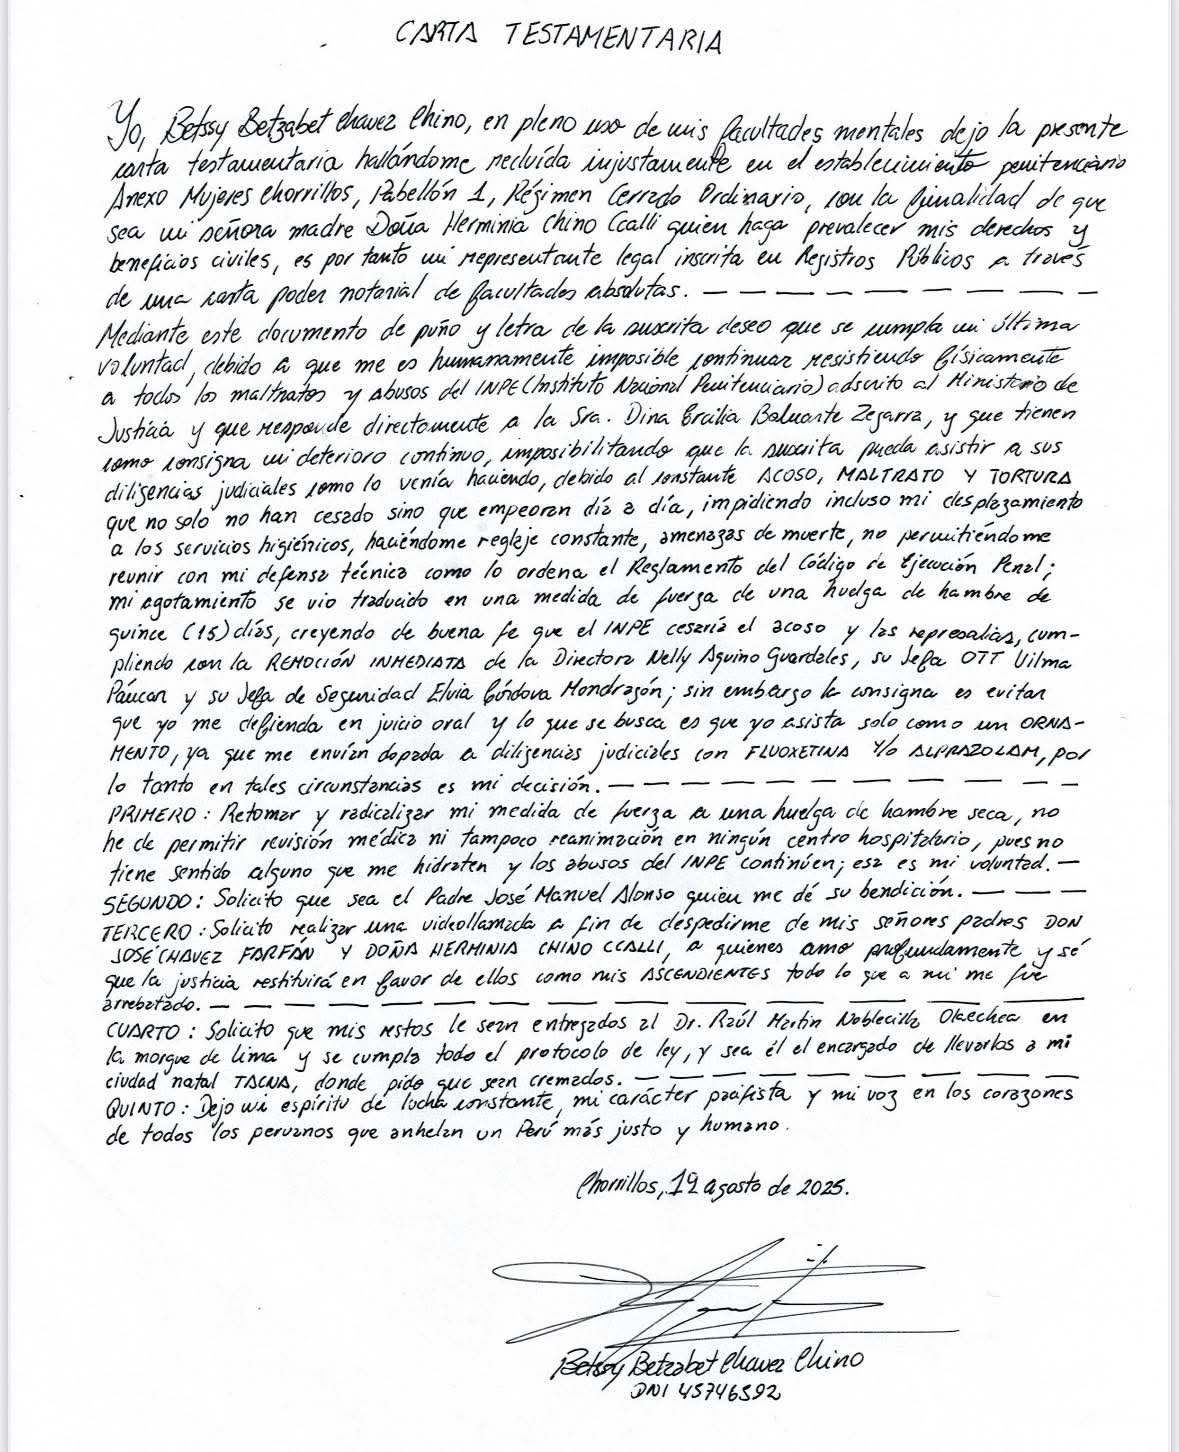 CARTA TESTAMENTARIA
Yo, Betssy Betzabet Chavez Chino, en pleno uso de mis facultades mentales dejo la presente
carta testamentaria hallándome recluída injustamente en el establecimiento penitenciario
Anexo Mujeres Chorrillos, Pabellón 1, Régimen Cerrado Ordinario, con la finalidad de que
sea mi señora madre Doña Herminia Chino Ccalli quien haga prevalecer mis derechos y
beneficios civiles, es por tanto mi representante legal inscrita en Registros Públicos a través
de una carta poder notarial de facultades absolutas. — — — — — — — — — —
Mediante este documento de puño y letra de la suscrita deseo que se cumpla mi última
voluntad, debido a que me es humanamente imposible continuar resistiendo físicamente
a todos los maltratos y abusos del INPE (Instituto Nacional Penitenciario) adscrito al Ministerio de
Justicia y que responde directamente a la Sra. Dina Ercilia Boluarte Zegarra, y que tienen
como consigna mi deterioro continuo, imposibilitando que la suscrita pueda asistir a sus
diligencias judiciales como lo venía haciendo, debido al constante ACOSO, MALTRATO Y TORTURA
que no solo no han cesado sino que empeoran día a día, impidiendo incluso mi desplazamiento
a los servicios higiénicos, haciéndome reglaje constante, amenazas de muerte, no permitiéndome
reunir con mi defensa técnica como lo ordena el Reglamento del Código de Ejecución Penal;
mi agotamiento se vio traducido en una medida de fuerza de una huelga de hambre de
quince (15) días, creyendo de buena fe que el INPE cesaría el acoso y las represalias, cum-
pliendo con la REMOCIÓN INMEDIATA de la Directora Nelly Aquino Guardales, su Jefa OTT Vilma
Páucar y su Jefa de Seguridad Elvia Córdova Mondragón; sin embargo la consigna es evitar
que yo me defienda en juicio oral y lo que se busca es que yo asista solo como un ORNA-
MENTO, ya que me envían dopada a diligencias judiciales con FLUOXETINA Y/o ALPRAZOLAM, por
lo tanto en tales circunstancias es mi decisión. — — — — — — — — — — — —
PRIMERO: Retomar y radicalizar mi medida de fuerza a una huelga de hambre seca, no
he de permitir revisión médica ni tampoco reanimación en ningún centro hospitalario, pues no
tiene sentido alguno que me hidraten y los abusos del INPE continúen; esa es mi voluntad. —
SEGUNDO: Solicito que sea el Padre José Manuel Alonso quien me dé su bendición. — — —
TERCERO: Solicito realizar una videollamada a fin de despedirme de mis señores padres DON
JOSÉ CHAVEZ FARFÁN Y DOÑA HERMINIA CHINO CCALLI, a quienes amo profundamente y sé
que la justicia restituirá en favor de ellos como mis ASCENDIENTES todo lo que a mí me fue
arrebatado. — — — — — — — — — — — — — — — — —
CUARTO: Solicito que mis restos le sean entregados al Dr. Raúl Martin Noblecilla Olaechea en
la morgue de Lima y se cumpla todo el protocolo de ley, y sea él el encargado de llevarlos a mi
ciudad natal TACNA, donde pido que sean cremados. — — — — — — — — — —
QUINTO: Dejo mi espíritu de lucha constante, mi carácter praxista y mi voz en los corazones
de todos los peruanos que anhelan un Perú más justo y humano.
Chorrillos, 19 agosto de 2025.
Betssy Betzabet Chavez Chino
DNI 45746592